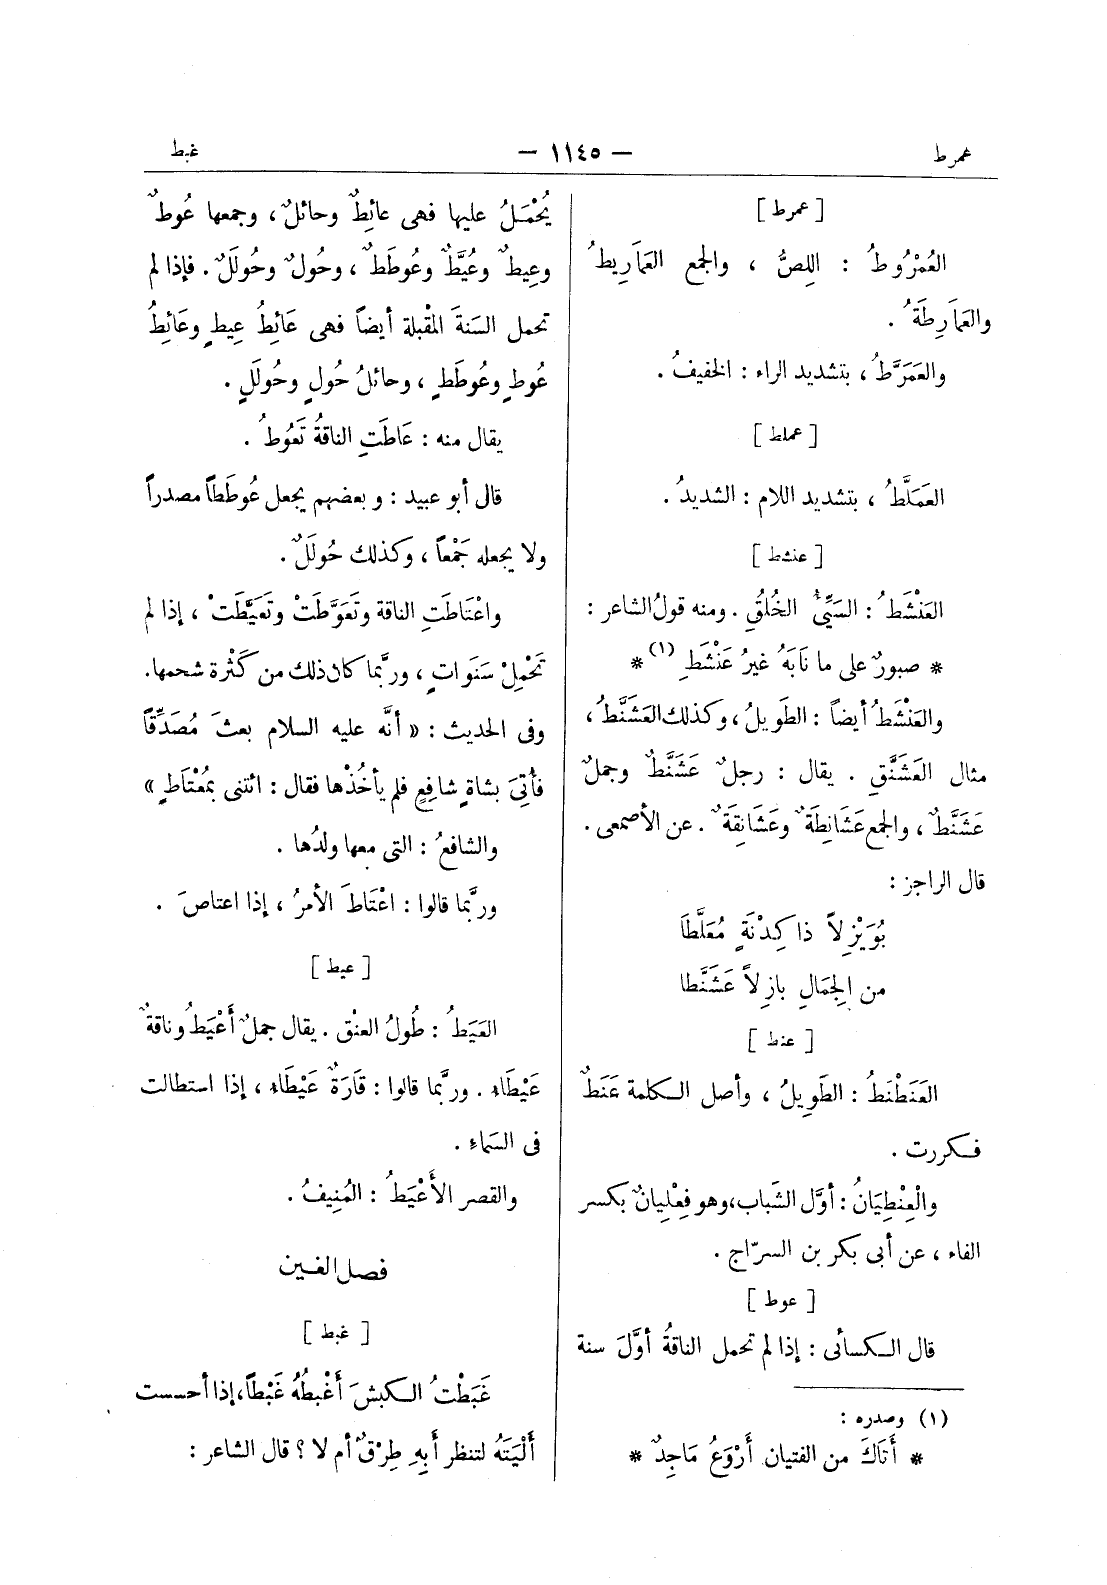 عمرط — ١١٤٥ — غبط
[ عمرط ]
العُمْرُوطُ : اللِصُّ ، والجمع العَمَارِيطُ
والعَمَارِطَةُ .
والعَمَرَّطُ ، بتشديد الراء : الخفيفُ .
[ عملط ]
العَمَلَّطُ ، بتشديد اللام : الشديدُ .
[ عنشط ]
العَنْشَطُ : السَيِّئُ الخُلُقِ . ومنه قولُ الشاعر :
* صبورٌ على ما نَابَهُ غيرُ عَنْشَطِ (١) *
والعَنْشَطُ أيضاً : الطَويلُ ، وكذلك العَشَنَّطُ ،
مثال العَشَنَّقِ . يقال : رجلٌ عَشَنَّطٌ وجملٌ
عَشَنَّطٌ ، والجمع عَشَانِطَةٌ وعَشَانِقَةٌ . عن الأصمعى .
قال الراجز :
بُوَيْزِلاً ذا كِدْنَةٍ مُعَلَّطَا
من الجِمَالِ بازِلاً عَشَنَّطا
[ عنط ]
العَنَطْنَطُ : الطَويلُ ، وأصل الكلمة عَنَطٌ
فكررت .
والْعِنْطِيَانُ : أوَّل الشَباب، وهو فِعْلِيانٌ بكسر
الفاء ، عن أبى بكر بن السرّاج .
[ عوط ]
قال الكسائى : إذا لم تحمل الناقةُ أوَّلَ سنة
(١) وصدره :
* أَتَاكَ من الفتيان أَرْوَعُ مَاجِدٌ *
يُحْمَلُ عليها فهى عائِطٌ وحائلٌ ، وجمعها عُوطٌ
وعِيطٌ وعُيَّطٌ وعُوطَطٌ ، وحُولٌ وحُولَلٌ . فإذا لم
تحمل السَنةَ المُقْبلة أيضاً فهى عَائِطُ عِيطٍ وعَائِطُ
عُوطٍ وعُوطَطٍ ، وحائلُ حُولٍ وحُولَلٍ .
يقال منه : عَاطَتِ الناقةُ تَعُوطُ .
قال أبو عبيد : وبعضهم يجعل عُوطَطاً مصدراً
ولا يجعله جَمْعاً ، وكذلك حُولَلٌ .
واعْتَاطَتِ الناقة وتَعَوَّطَتْ وتَعَيَّطَتْ ، إذا لم
تَحْمِلْ سَنَوَاتٍ ، وربَّما كان ذلك من كَثْرة شحمها.
وفى الحديث : « أنَّه عليه السلام بعثَ مُصَدِّقاً
فأُتِىَ بشاةٍ شافِعٍ فلم يأخُذْها فقال : ائتنى بمُعْتَاطٍ »
والشافعُ : التى معها ولدُها .
وربَّما قالوا : اعْتَاطَ الأمرُ ، إذا اعتاصَ .
[ عيط ]
العَيَطُ : طُولُ العنْق . يقال جملٌ أَعْيَطُ وناقةٌ
عَيْطَاء . وربَّما قالوا : قَارَةٌ عَيْطَاء ، إذا استطالت
فى السَماءِ .
والقصر الأَعْيَطُ : المُنِيفُ .
فصل الغين
[ غبط ]
غَبَطْتُ الكبشَ أَغْبِطُهُ غَبْطاً، إذا أحسست
أَلْيَتَهُ لتنظر أَبِهِ طِرْقٌ أم لا ؟ قال الشاعر :